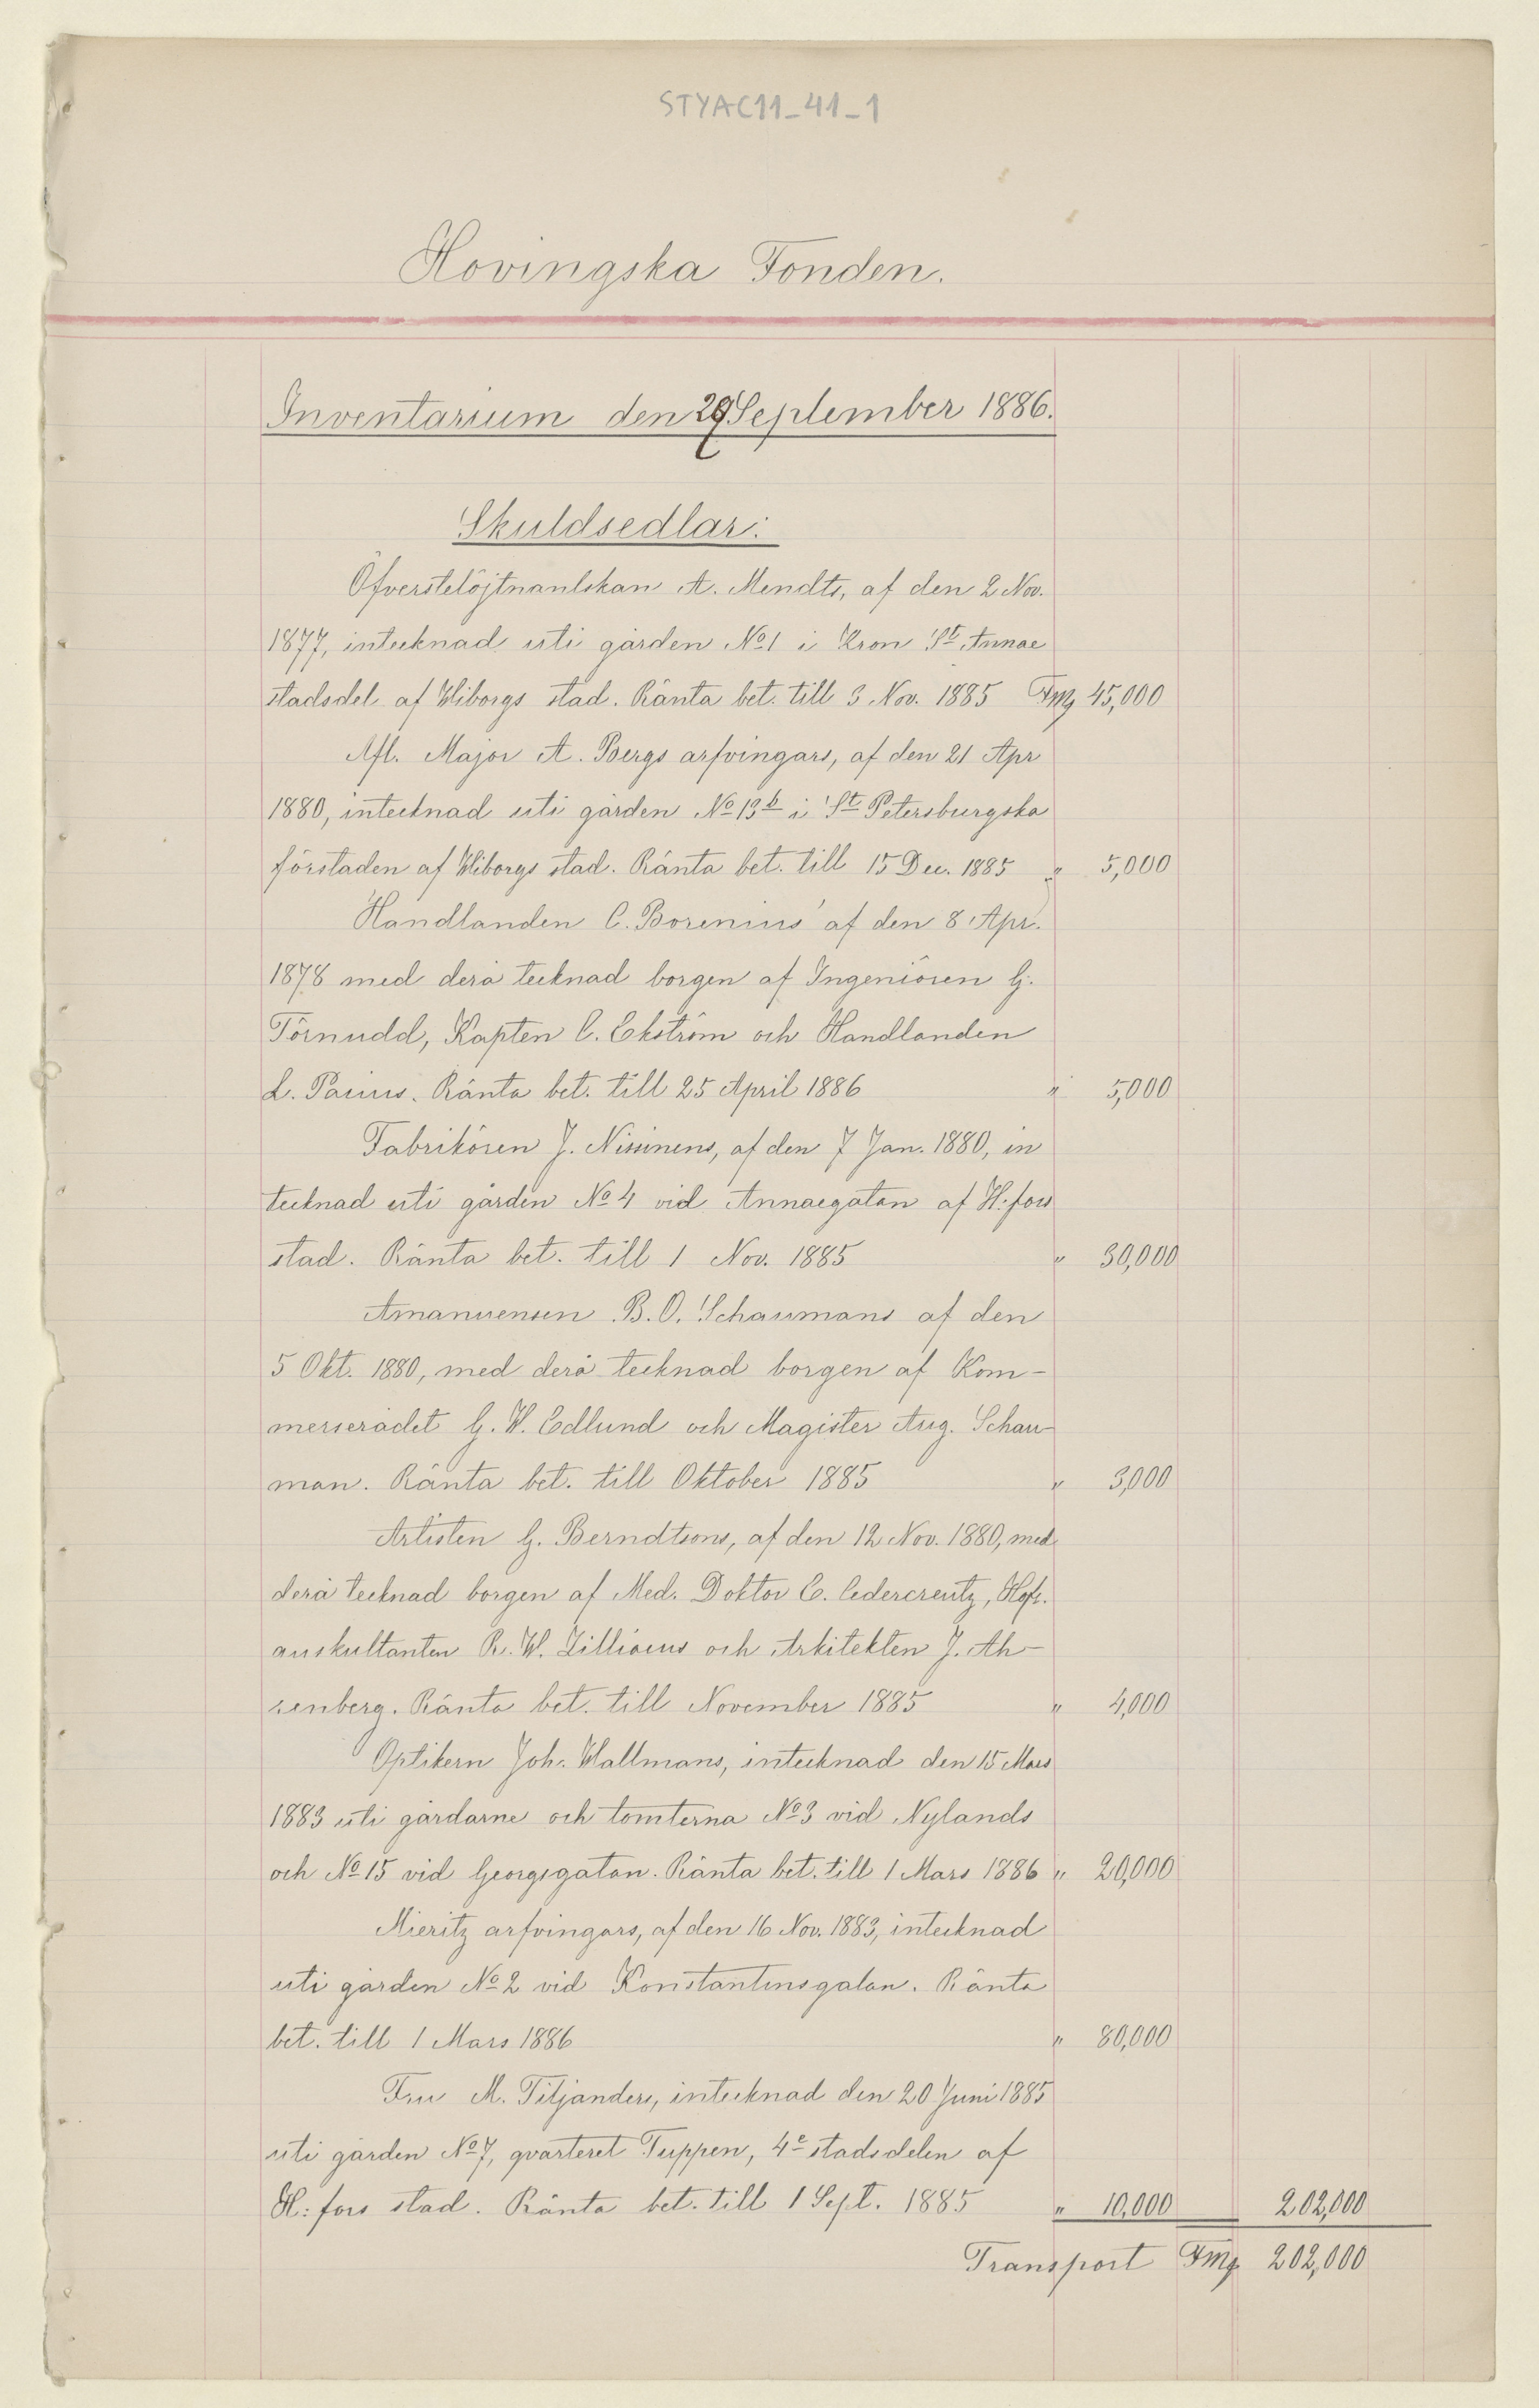 STYAC11_41_1
Hovingska Fonden.
Inventarium den 29 September 1886.
Skuldsedlar:
Öfverstelöjtnantskan A. Mendts, af den 2 Nov.
1877, intecknad uti gården No 1 i Kron St Annae
stadsdel af Wiborgs stad. Ränta bet. till 3 Nov. 1885 Fmg 45,000
Afl. Major A. Bergs arfvingars, af den 21 Apr
1880, intecknad uti gården No 13b i St Petersburgska
förstaden af Wiborgs stad. Ränta bet. till 15 Dec. 1885 " 5,000
Handlanden C. Borenius' af den 8 Apr.
1878 med derå tecknad borgen af Ingeniören G.
Törnudd, Kapten C. Ekström och Handlanden
L. Pacius. Ränta bet. till 25 April 1886 " 5,000
Fabrikören J. Nissinens, af den 7 Jan. 1880, in
tecknad uti gården No 4 vid Annaegatan af H:fors
stad. Ränta bet. till 1 Nov. 1885 " 30,000
Amanuensen B. O. Schaumans af den
5 Okt. 1880, med derå tecknad borgen af Kom-
merserådet G. W. Edlund och Magister Aug. Schau-
man. Ränta bet. till Oktober 1885 " 3,000
Artisten G. Berndtsons, af den 12 Nov. 1880, med
derå tecknad borgen af Med. Doktor C. Cedercreutz, Hofr.
auskultanten R. W. Zilliacus och Arkitekten J. Ah-
renberg. Ränta bet. till November 1885 " 4,000
Optikern Joh. Wallmans, intecknad den 15 Mars
1883 uti gårdarne och tomterna No 3 vid Nylands
och No 15 vid Georgsgatan. Ränta bet. till 1 Mars 1886 " 20,000
Mieritz arfvingars, af den 16 Nov. 1883, intecknad
uti gården No 2 vid Konstantinsgatan. Ränta
bet. till 1 Mars 1886 " 80,000
Fru M. Tiljanders, intecknad den 20 Juni 1885
uti gården No 7, qvarteret Tuppen, 4e stadsdelen af
H:fors stad. Ränta bet. till 1 Sept. 1885 " 10,000 202,000
Transport Fmg 202,000